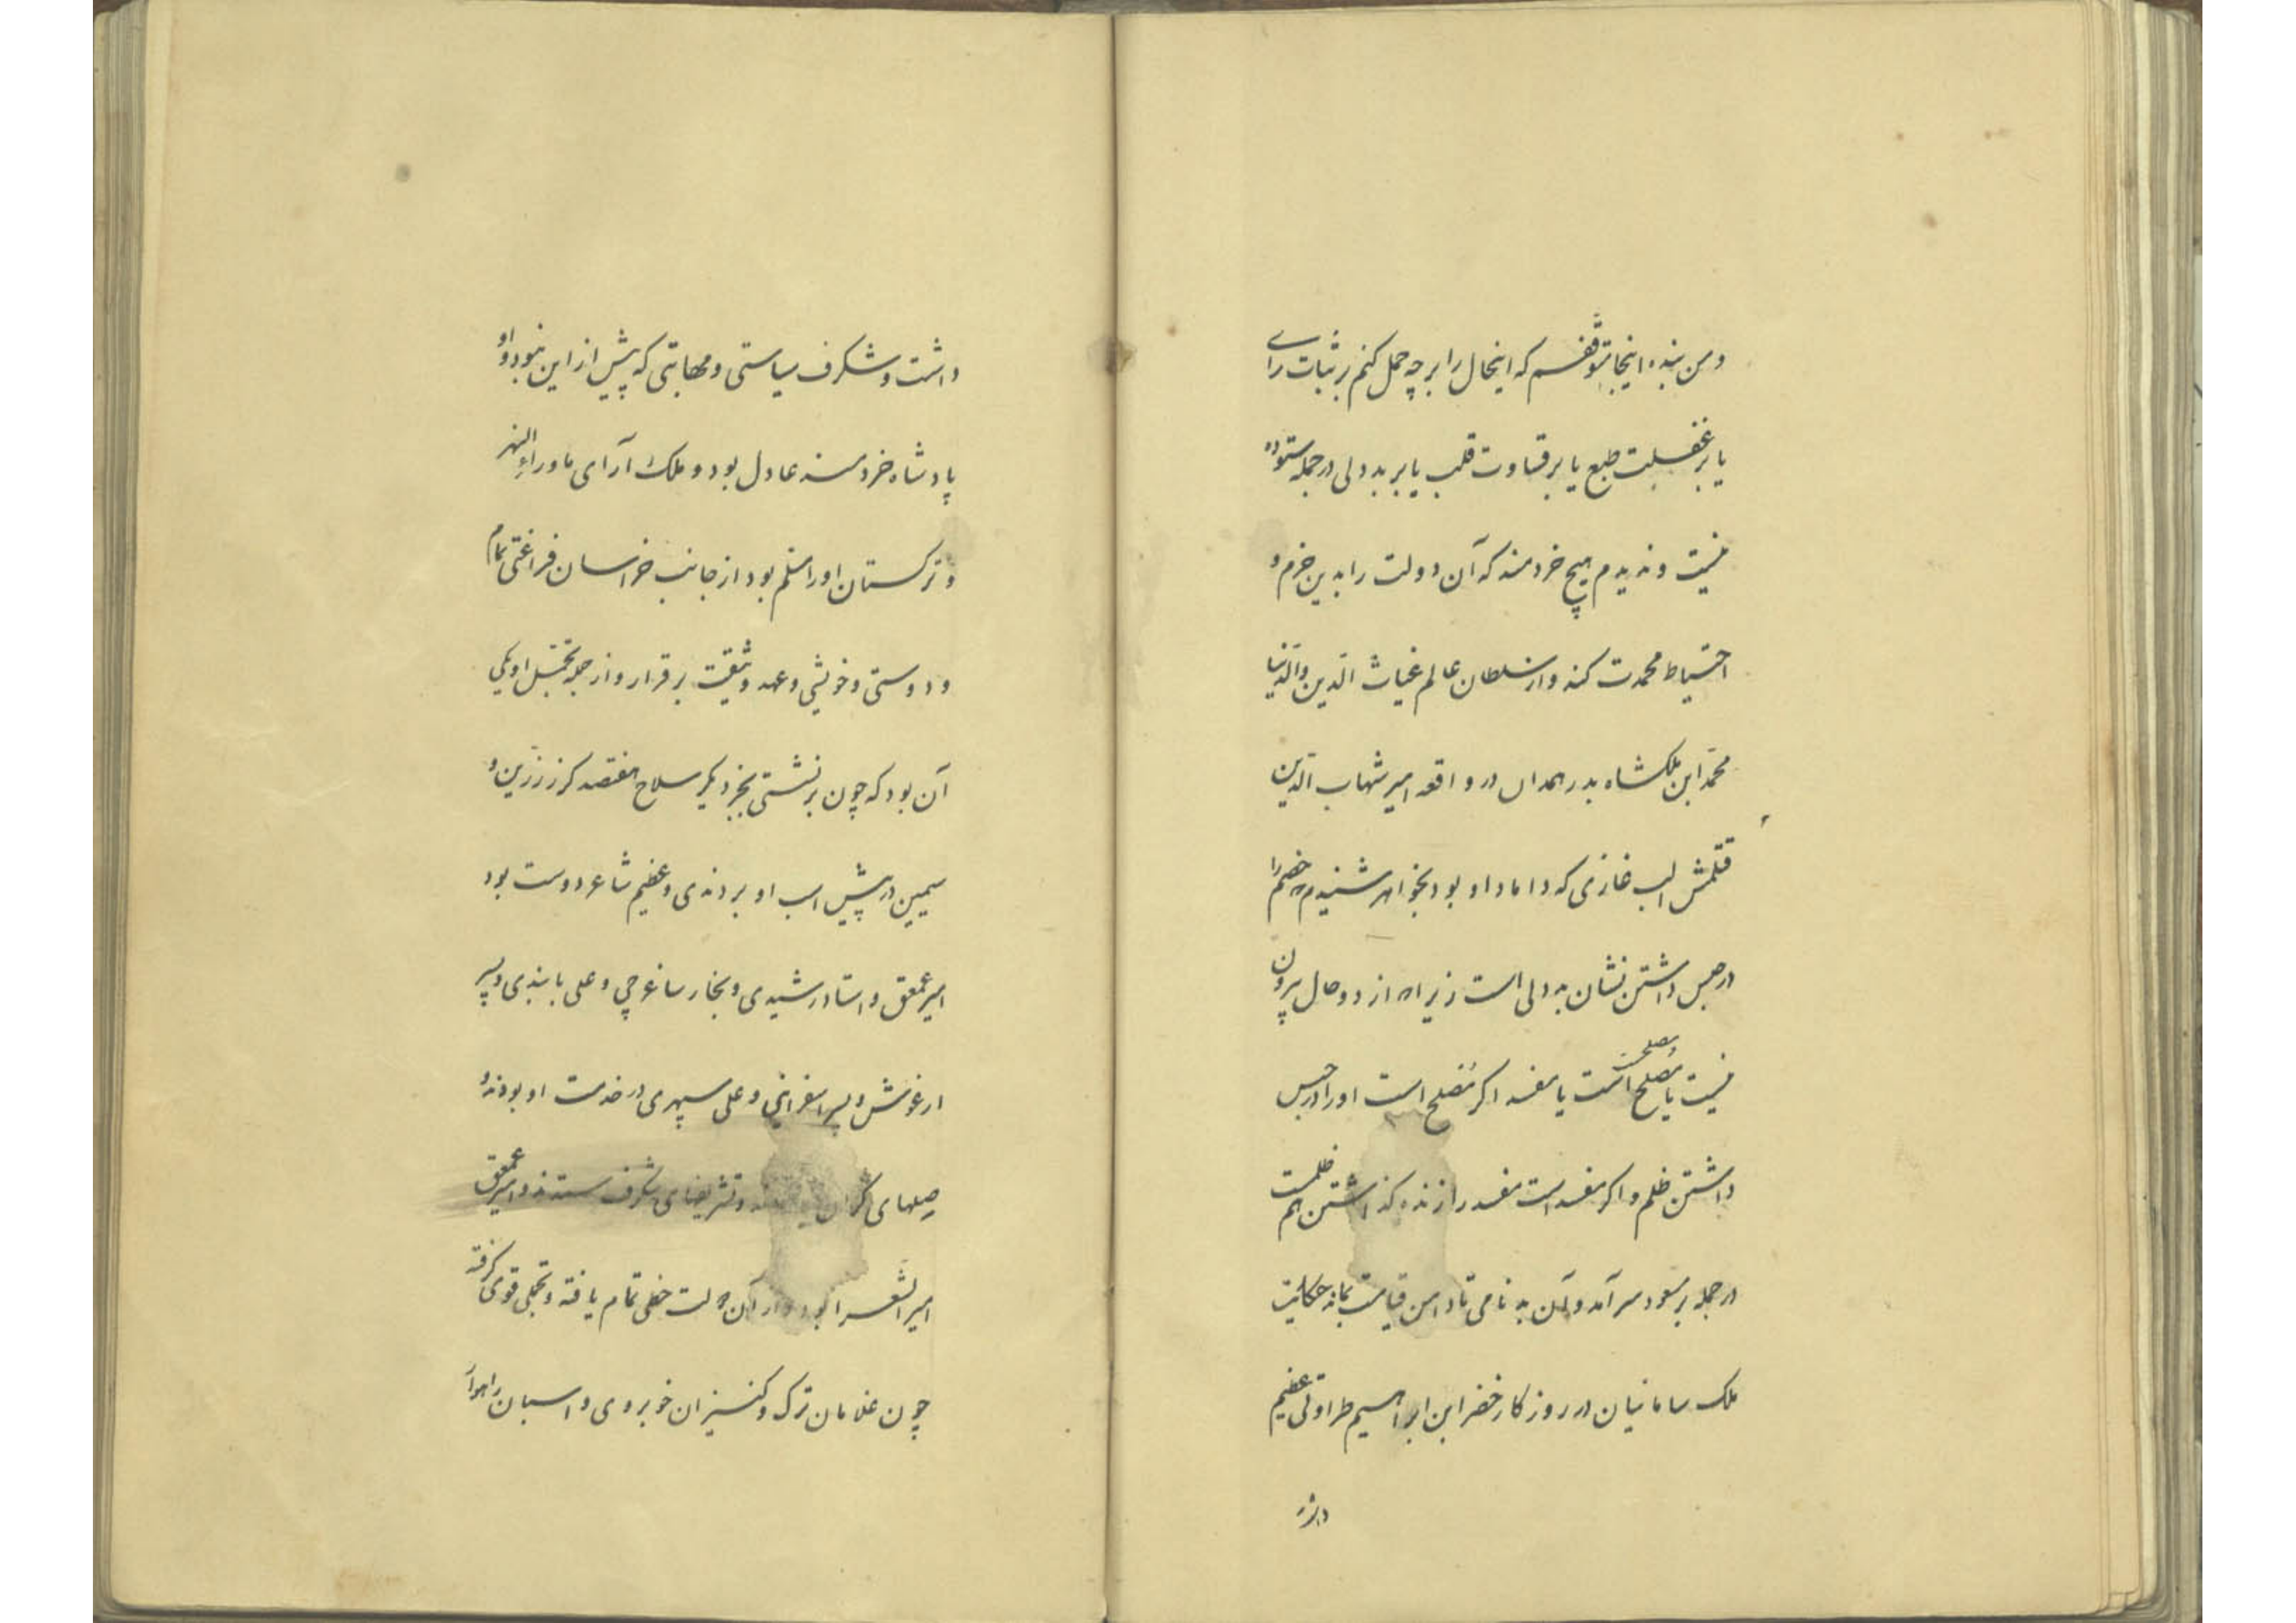 و من بنده اینجا متوقفم که اینحال را بر چه حمل کنم بر ثبات رای
یا بر غفلت طبع یا بر قساوت قلب یا بر بد دلی در جمله ستوده
نیست و ندیدم هیچ خردمند که آن دولت را بدین حزم و
احتیاط محمدت کند و از سلطان عالم غیاث الدین والدنیا
محمد ابن ملکشاه بدر همدان در واقعه امیر شهاب الدین
قتلمش الب غازی که داماد او بود بخواهر شنیدم که خصم را
در حبس داشتن نشان بد دلی است زیراکه از دو حال بیرون
نیست یا مصلح است یا مفسد اگر مصلح است او را در حبس
داشتن ظلم و اگر مفسد است مفسد را زنده گذاشتن هم ظلمست
در جمله بر مسعود سر آمد و آن بد نامی تا دامن قیامت بماند حکایت
ملک سامانیان در روزگار خضر ابن ابراهیم طراوتی عظیم
داشت
داشت و شکرف سیاستی و مهابتی که پیش از این نبود و او
پادشاه خردمند عادل بود و ملک آرای ماوراءالنهر
و ترکستان او را مسلم بود از جانب خراسان فراغتی تمام
و دوستی و خویشی و عهد وثیقت بر قرار و از جمله تجمل او یکی
آن بود که چون برنشستی بجز دیگر سلاح هفتصد گرز زرین و
سیمین در پیش اسب او بردندی و عظیم شاعر دوست بود
امیر عمعق و استاد رشیدی و نجار ساغرچی و علی بانیذی و پسر
ارغوش و پسر اسفراینی و علی سپهری در خدمت او بودند و
صلهای گران و تشریفهای شکرف ستدند و امیر عمعق
امیر الشعرا بود و از آن دولت حظی تمام یافته و تجملی قوی گرفته
چون غلامان ترک و کنیزان خوبروی و اسبان راهوار